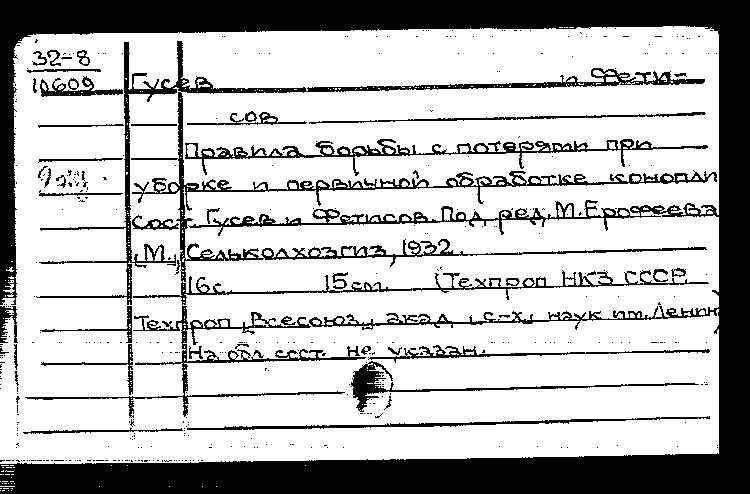 32-8
10609 Гусев и Фети-
сов
Правила борьбы с потерями при
уборке и первичной обработке конопли
Сост. Гусев и Фетисов. Под ред. М. Ерофеева
[М.] Сельколхозгиз, 1932.
16 с. 15 см. (Техпроп НКЗ СССР
Техпроп [Всесоюз.] акад. [с.-х.] наук им. Ленин)
На обл. сост. не указан.